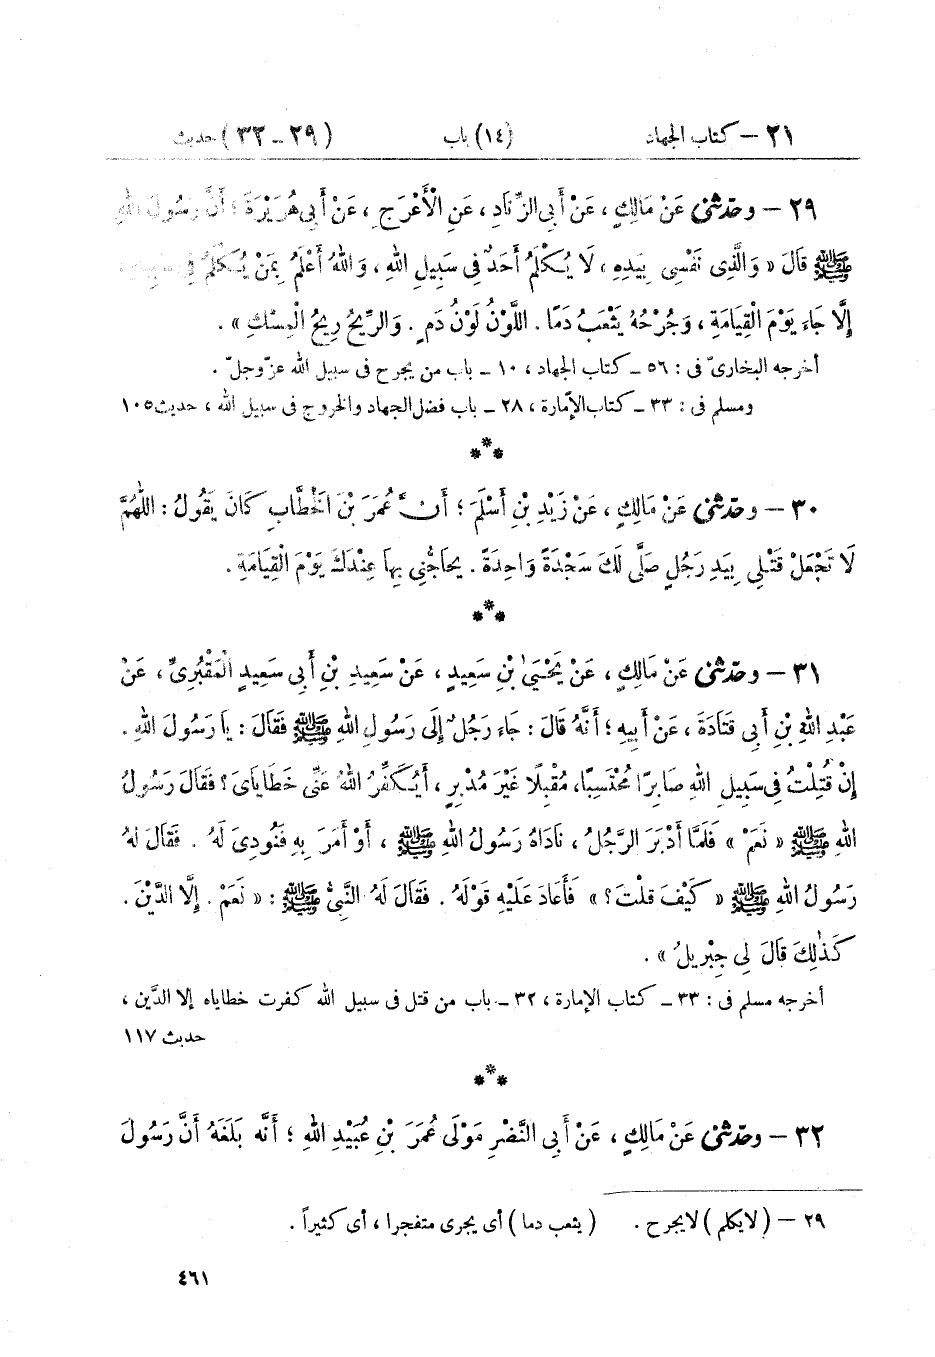 ٢١ – كتاب الجهاد (١٤) باب (٢٩ – ٣٢) حديث
٢٩ – وحدّثنى عَنْ مَالِكٍ ، عَنْ أَبِى الزِّنَادِ ، عَنِ الْأَعْرَجِ ، عَنْ أَبِى هُرَيْرَةَ ؛ أَنَّ رَسُولَ اللهِ
ﷺ قَالَ « وَالَّذِى نَفْسِى بِيَدِهِ ، لَا يُكْلَمُ أَحَدٌ فِى سَبِيلِ اللهِ ، وَاللهُ أَعْلَمُ بِمَنْ يُكْلَمُ فِى سَبِيلِهِ ،
إِلَّا جَاءَ يَوْمَ الْقِيَامَةِ ، وَجُرْحُهُ يَثْعَبُ دَمًا . اللَّوْنُ لَوْنُ دَمٍ . وَالرِّيحُ رِيحُ الْمِسْكِ » .
أخرجه البخارىّ فى : ٥٦ – كتاب الجهاد ، ١٠ – باب من يجرح فى سبيل الله عزّ وجلّ .
ومسلم فى : ٣٣ – كتاب الإمارة ، ٢٨ – باب فضل الجهاد والخروج فى سبيل الله ، حديث ١٠٥
***
٣٠ – وحدّثنى عَنْ مَالِكٍ ، عَنْ زَيْدِ بْنِ أَسْلَمَ ؛ أَنَّ عُمَرَ بْنَ الْخَطَّابِ كَانَ يَقُولُ : اللّٰهُمَّ
لَا تَجْعَلْ قَتْلِى بِيَدِ رَجُلٍ صَلَّى لَكَ سَجْدَةً وَاحِدَةً . يُحَاجُّنِى بِهَا عِنْدَكَ يَوْمَ الْقِيَامَةِ .
***
٣١ – وحدّثنى عَنْ مَالِكٍ ، عَنْ يَحْيَىٰ بْنِ سَعِيدٍ ، عَنْ سَعِيدِ بْنِ أَبِى سَعِيدٍ الْمَقْبُرِىِّ ، عَنْ
عَبْدِ اللهِ بْنِ أَبِى قَتَادَةَ ، عَنْ أَبِيهِ ؛ أَنَّهُ قَالَ : جَاءَ رَجُلٌ إِلَى رَسُولِ اللهِ ﷺ فَقَالَ : يَا رَسُولَ اللهِ .
إِنْ قُتِلْتُ فِى سَبِيلِ اللهِ صَابِرًا مُحْتَسِبًا، مُقْبِلًا غَيْرَ مُدْبِرٍ ، أَيُكَفِّرُ اللهُ عَنِّى خَطَايَاىَ ؟ فَقَالَ رَسُولُ
اللهِ ﷺ « نَعَمْ » فَلَمَّا أَدْبَرَ الرَّجُلُ ، نَادَاهُ رَسُولُ اللهِ ﷺ ، أَوْ أَمَرَ بِهِ فَنُودِىَ لَهُ . فَقَالَ لَهُ
رَسُولُ اللهِ ﷺ « كَيْفَ قُلْتَ ؟ » فَأَعَادَ عَلَيْهِ قَوْلَهُ . فَقَالَ لَهُ النَّبِىُّ ﷺ : « نَعَمْ . إِلَّا الدَّيْنَ .
كَذٰلِكَ قَالَ لِى جِبْرِيلُ » .
أخرجه مسلم فى : ٣٣ – كتاب الإمارة ، ٣٢ – باب من قتل فى سبيل الله كفرت خطاياه إلا الدَّين ،
حديث ١١٧
***
٣٢ – وحدّثنى عَنْ مَالِكٍ ، عَنْ أَبِى النَّضْرِ مَوْلَى عُمَرَ بْنِ عُبَيْدِ اللهِ ؛ أَنَّه بَلَغَهُ أَنَّ رَسُولَ
٢٩ – ( لايكلم ) لايجرح . ( يثعب دما ) أى يجرى متفجرا ، أى كثيراً .
٤٦١